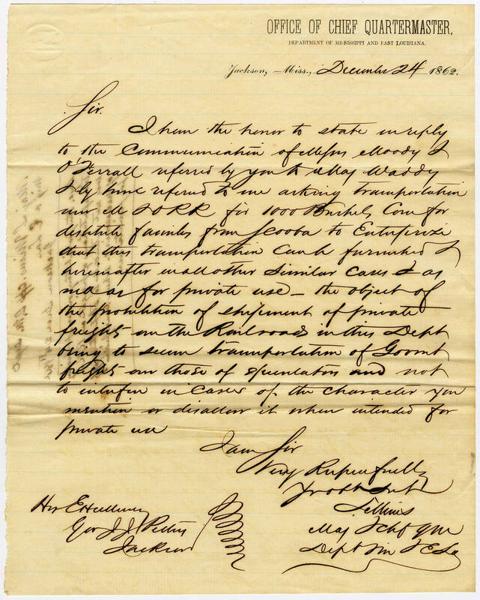 OFFICE OF CHIEF QUARTERMASTER,
DEPARTMENT OF MISSISSIPPI AND EAST LOUISIANA.
Jackson, Miss., December 24 1862.
Sir.
I have the honor to state in reply
to the Communication of Messrs Moody &
O'Ferrall referred by you to Maj Waddy
& by him referred to me asking transportation
over M & O RR for 1000 Bushels Corn for
destitute families from Scooba to Enterprize
that this transportation can be furnished &
hereafter in all other similar cases & as
for private use — the object of
the prohibition of shipment of private
freights on the Railroads in this Dept
being to secure transportation of Govmt
freights over those of speculators and not
to interfere in Cases of the character you
mention or disallow it when intended for
private use
I am Sir
Very Respectfully
Yr obt Svt
L Mims
Maj & Chf QM
Dept Mi & E La
His Excellency
Gov J. J. Pettus
Jackson